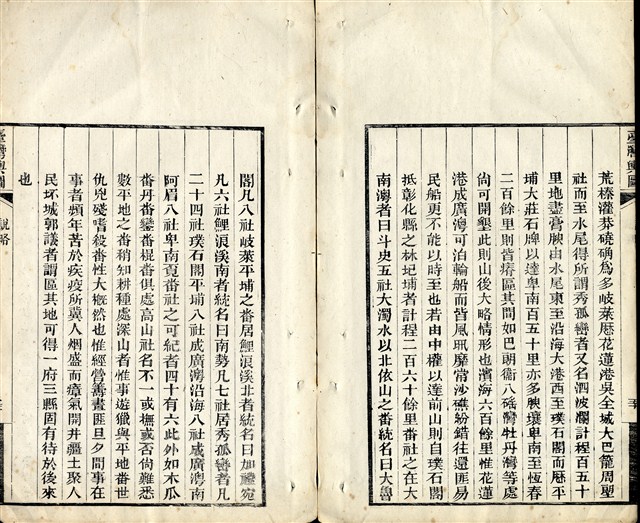 臺灣輿圖
荒榛灌莽磽确為多岐萊厯花蓮港吳全城大巴籠周塱
社而至水尾得所謂秀孤巒者又名泗波瀾計程百五十
里地盡膏腴由水尾東至沿海大港西至璞石閣而厯平
埔大莊石牌以達卑南百五十里亦多腴壤卑南至恆春
二百餘里則皆瘠區其間如巴朗衞八磘灣牡丹灣等處
尙可開墾此則山後大略情形也濱海六百餘里惟花蓮
港成廣澳可泊輪船而皆風汛靡常沙礁紛錯往還匪易
民船更不能以時至也若由中權以達前山則自璞石閣
抵彰化縣之林圮埔者計程二百六十餘里番社之在大
南澳者曰斗史五社大濁水以北依山之番統名曰大魯
閣凡八社岐萊平埔之番居鯉浪溪北者統名曰加禮宛
凡六社鯉浪溪南者統名曰南勢凡七社居秀孤巒者凡
二十四社璞石閣平埔八社成廣澳沿海八社成廣澳南
阿眉八社卑南覔番社之可紀者四十有六此外如木瓜
番丹番巒番棍番俱處高山社名不一或撫或否尙難悉
數平地之番稍知耕種處深山者惟事遊獵與平地番世
仇兇殘嗜殺番性大概然也惟經營善畫匪旦夕間事在
事者頻年苦於疾疫所冀人烟盛而瘴氣開井疆土聚人
民坏城郭議者謂區其地可得一府三縣固有待於後來
也
臺灣輿圖
說略